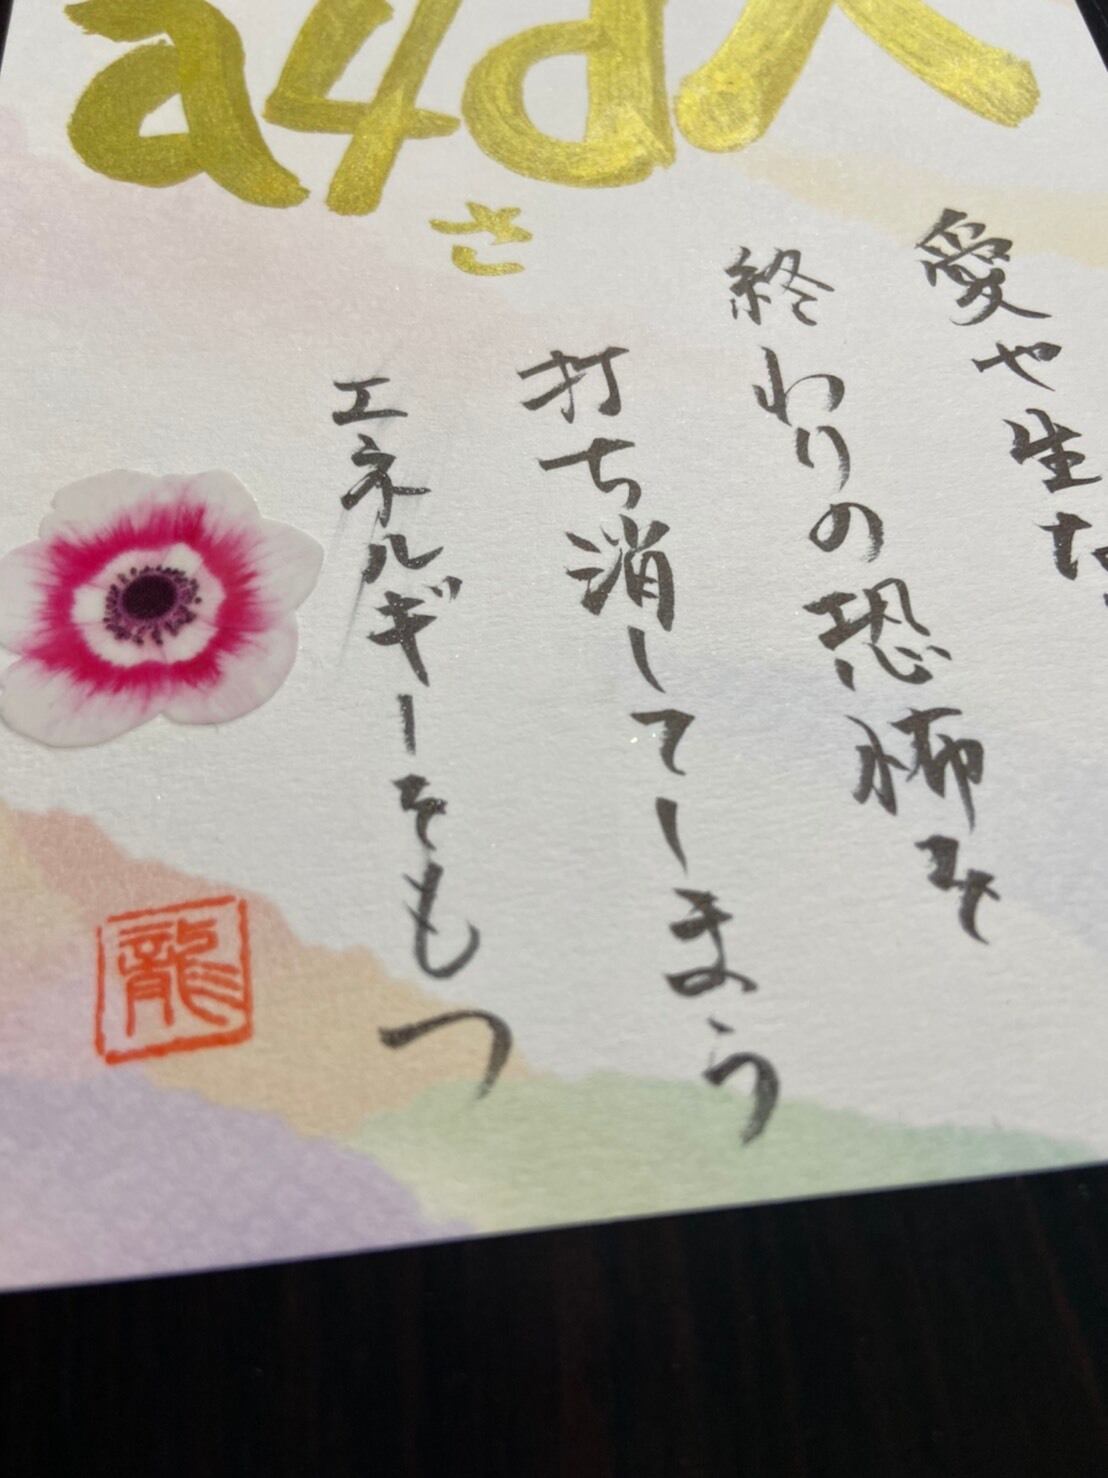 a4d人
さ
愛や生
終わりの恐怖を
打ち消してしまう
エネルギーをもつ
龍